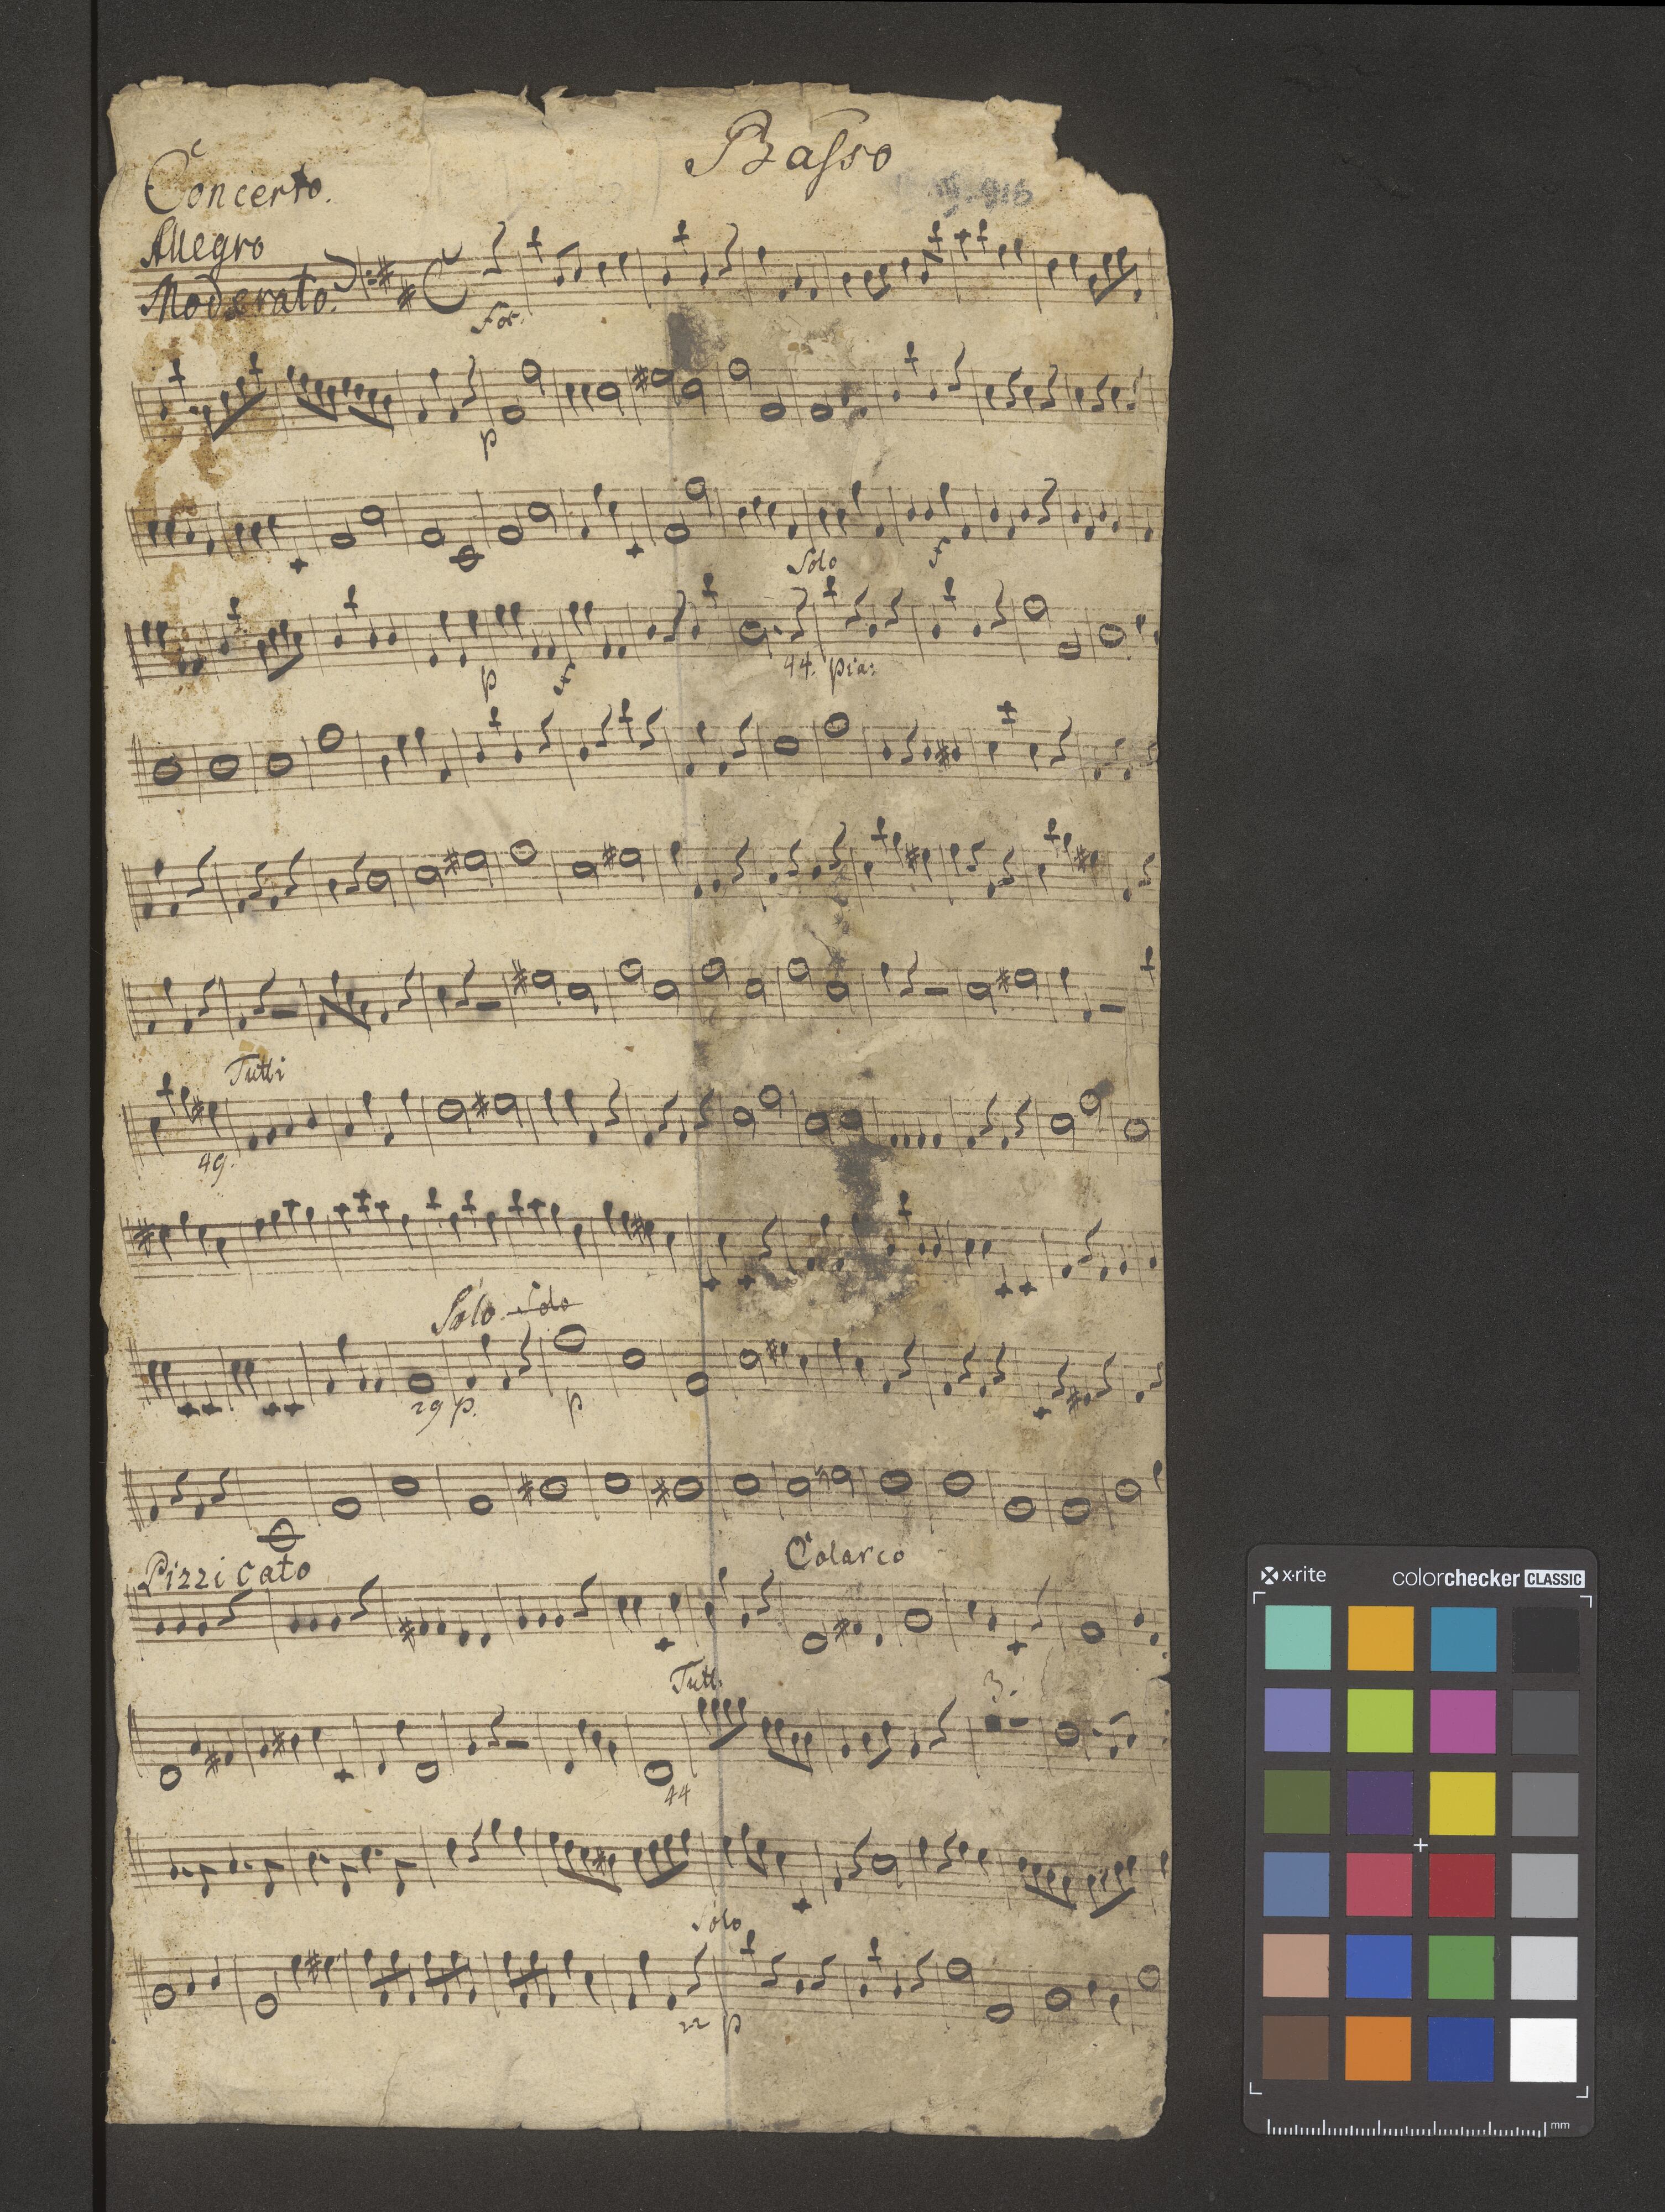 Basso
Concerto.
Allegro
Moderato.
For.
p
Solo f
p f 44. pia:
Tutti
49.
Solo Solo
29 p. p
Pizzicato Colarco
Tutti 3.
44
Solo
22 p
x·rite colorchecker CLASSIC
mm